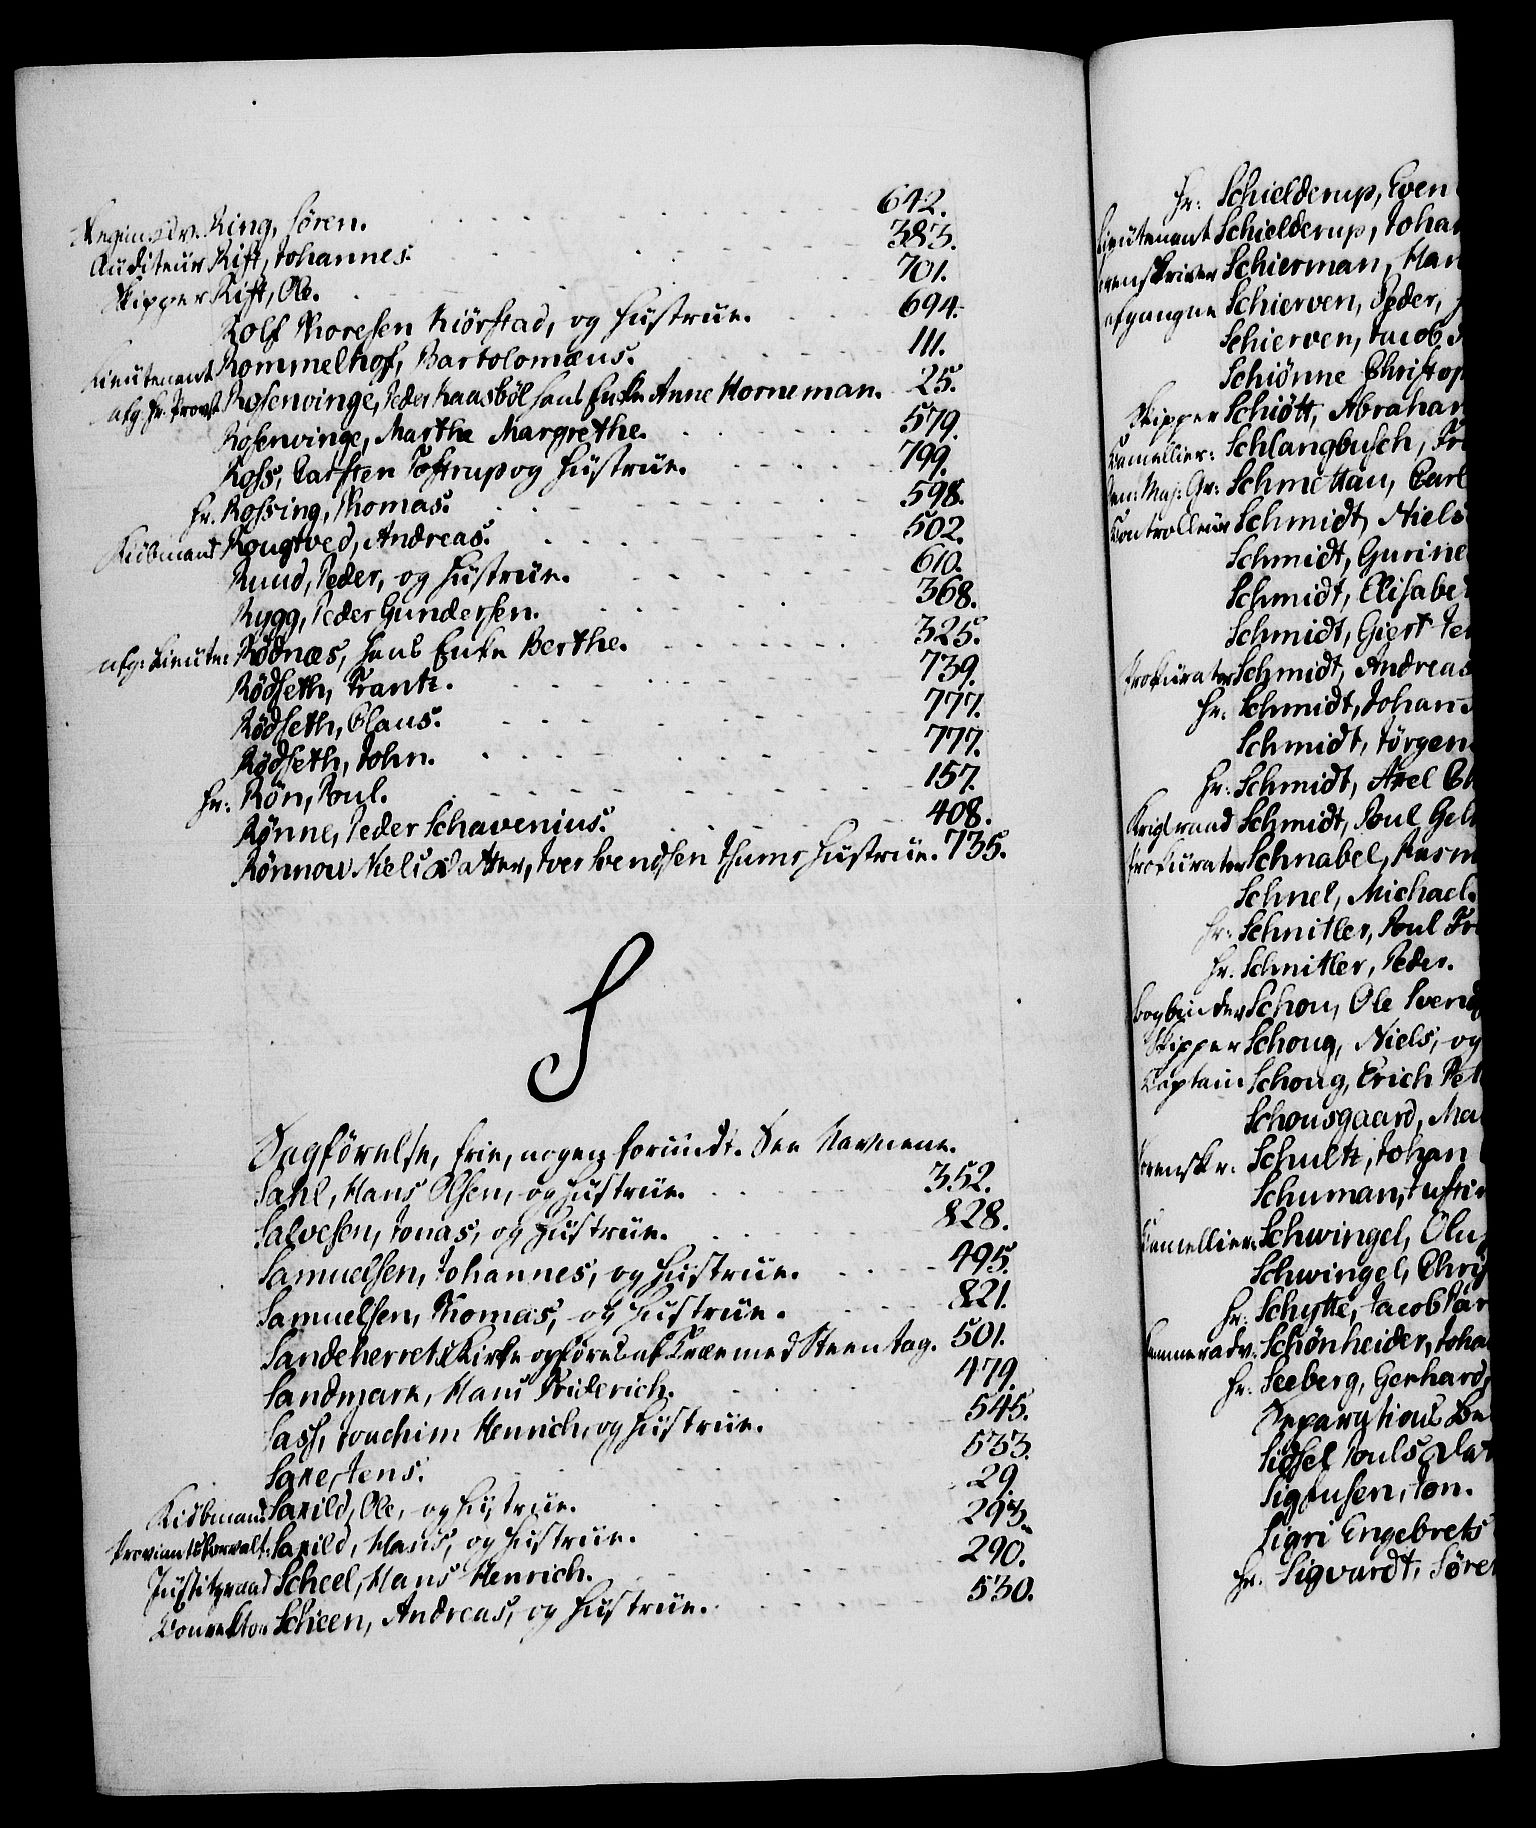 Regim:Qv. Ring, Sören. 642.
Auditeur Rist, Johannes. 383.
Skipper Rist, Ole. 701.
Rolf Thoresen Kiörstad, og Hustrue. 694.
Lieutenant Rommelhof, Bartolomæus. 111.
afg. Hr. Provst Rosenvinge, Peder Kaasböl hans Enke Anne Horneman. 25.
Rosenvinge, Marthe Margrethe. 579.
Ross, Carsten Tostrup og Hustrue. 799.
Hr. Rossing, Thomas. 598.
Kiöbmand Rougtved, Andreas. 502.
Ruud, Peder, og Hustrue. 610.
Rygg, Peder Gundersen. 368.
afg: Lieutn: Rödnæs, hans Enke Berthe. 325.
Rödseth, Frantz. 739.
Rödseth, Claus. 777.
Rödseth, John. 777.
Hr: Rön, Poul. 157.
Rönne, Peder Schavenius. 408.
Rönnow Niels Datter, Iver Svendsen Thums Hustrue. 735.
S
Sagförelse, frie, nogen forundt. See Navnene.
Sahl, Hans Olsen, og Hustrue. 352.
Salvesen, Jonas, og Hustrue. 828.
Samuelsen, Johannes, og Hustrue. 495.
Samuelsen, Thomas, og Hustrue. 821.
Sandeherreds Kirke opföres af Træe med Steen tag. 501.
Sandmark, Hans Friderich. 479.
Sass, Joachim Henrich, og Hustrue. 545.
Saxe, Jens. 533.
Kiöbmand Saxild, Ole, og Hustrue. 29.
Proviantsforvalt: Saxild, Hans, og Hustrue. 293.
Justitzraad Scheel, Hans Henrich. 290.
Conrektor Scheen, Andreas, og Hustrue. 530.
Hr: Schielderup, Even
Lieutenant Schielderup, Joha
Schierman, Han
afgangne Schierven, Peder,
Schierven, Jacob
Schiönne Christop
Skipper Schiött, Abraham
Camellier: Schlangbusch, Fr
Gen: Maj: Gr: Schmettau, Carl
Controlleur Schmidt, Niels
Schmidt, Gurine
Schmidt, Elisabe
Schmidt, Giert
Prokurator Schmidt, Andreas
Hr: Schmidt, Johan
Schmidt, Jörgen
Hr: Schmidt, Axel
Krigsraad Schmidt, Poul
Prokurator Schnabel, Rasm
Schnel, Michael.
Hr: Schnitler, Poul Fr
Hr. Schnitler, Peder.
Bogbinder Schou, Ole Svend
Skipper Schoug, Niels, og
Captain Schoug, Erich Pet
Schousgaard, Ma
Sorenskr: Schultz, Johan
Schuman, Justi
Camellier: Schwingel, Olu
Schwingel, Chri
Hr: Schytte, Jacob
Kammeradv: Schönheider, Joha
Hr: Seeberg, Gerhard
Separations Be
Sidsel Pouls Dat
Sigfusen, Jon.
Sigri Engebrets
Hr. Sigvardt, Söre